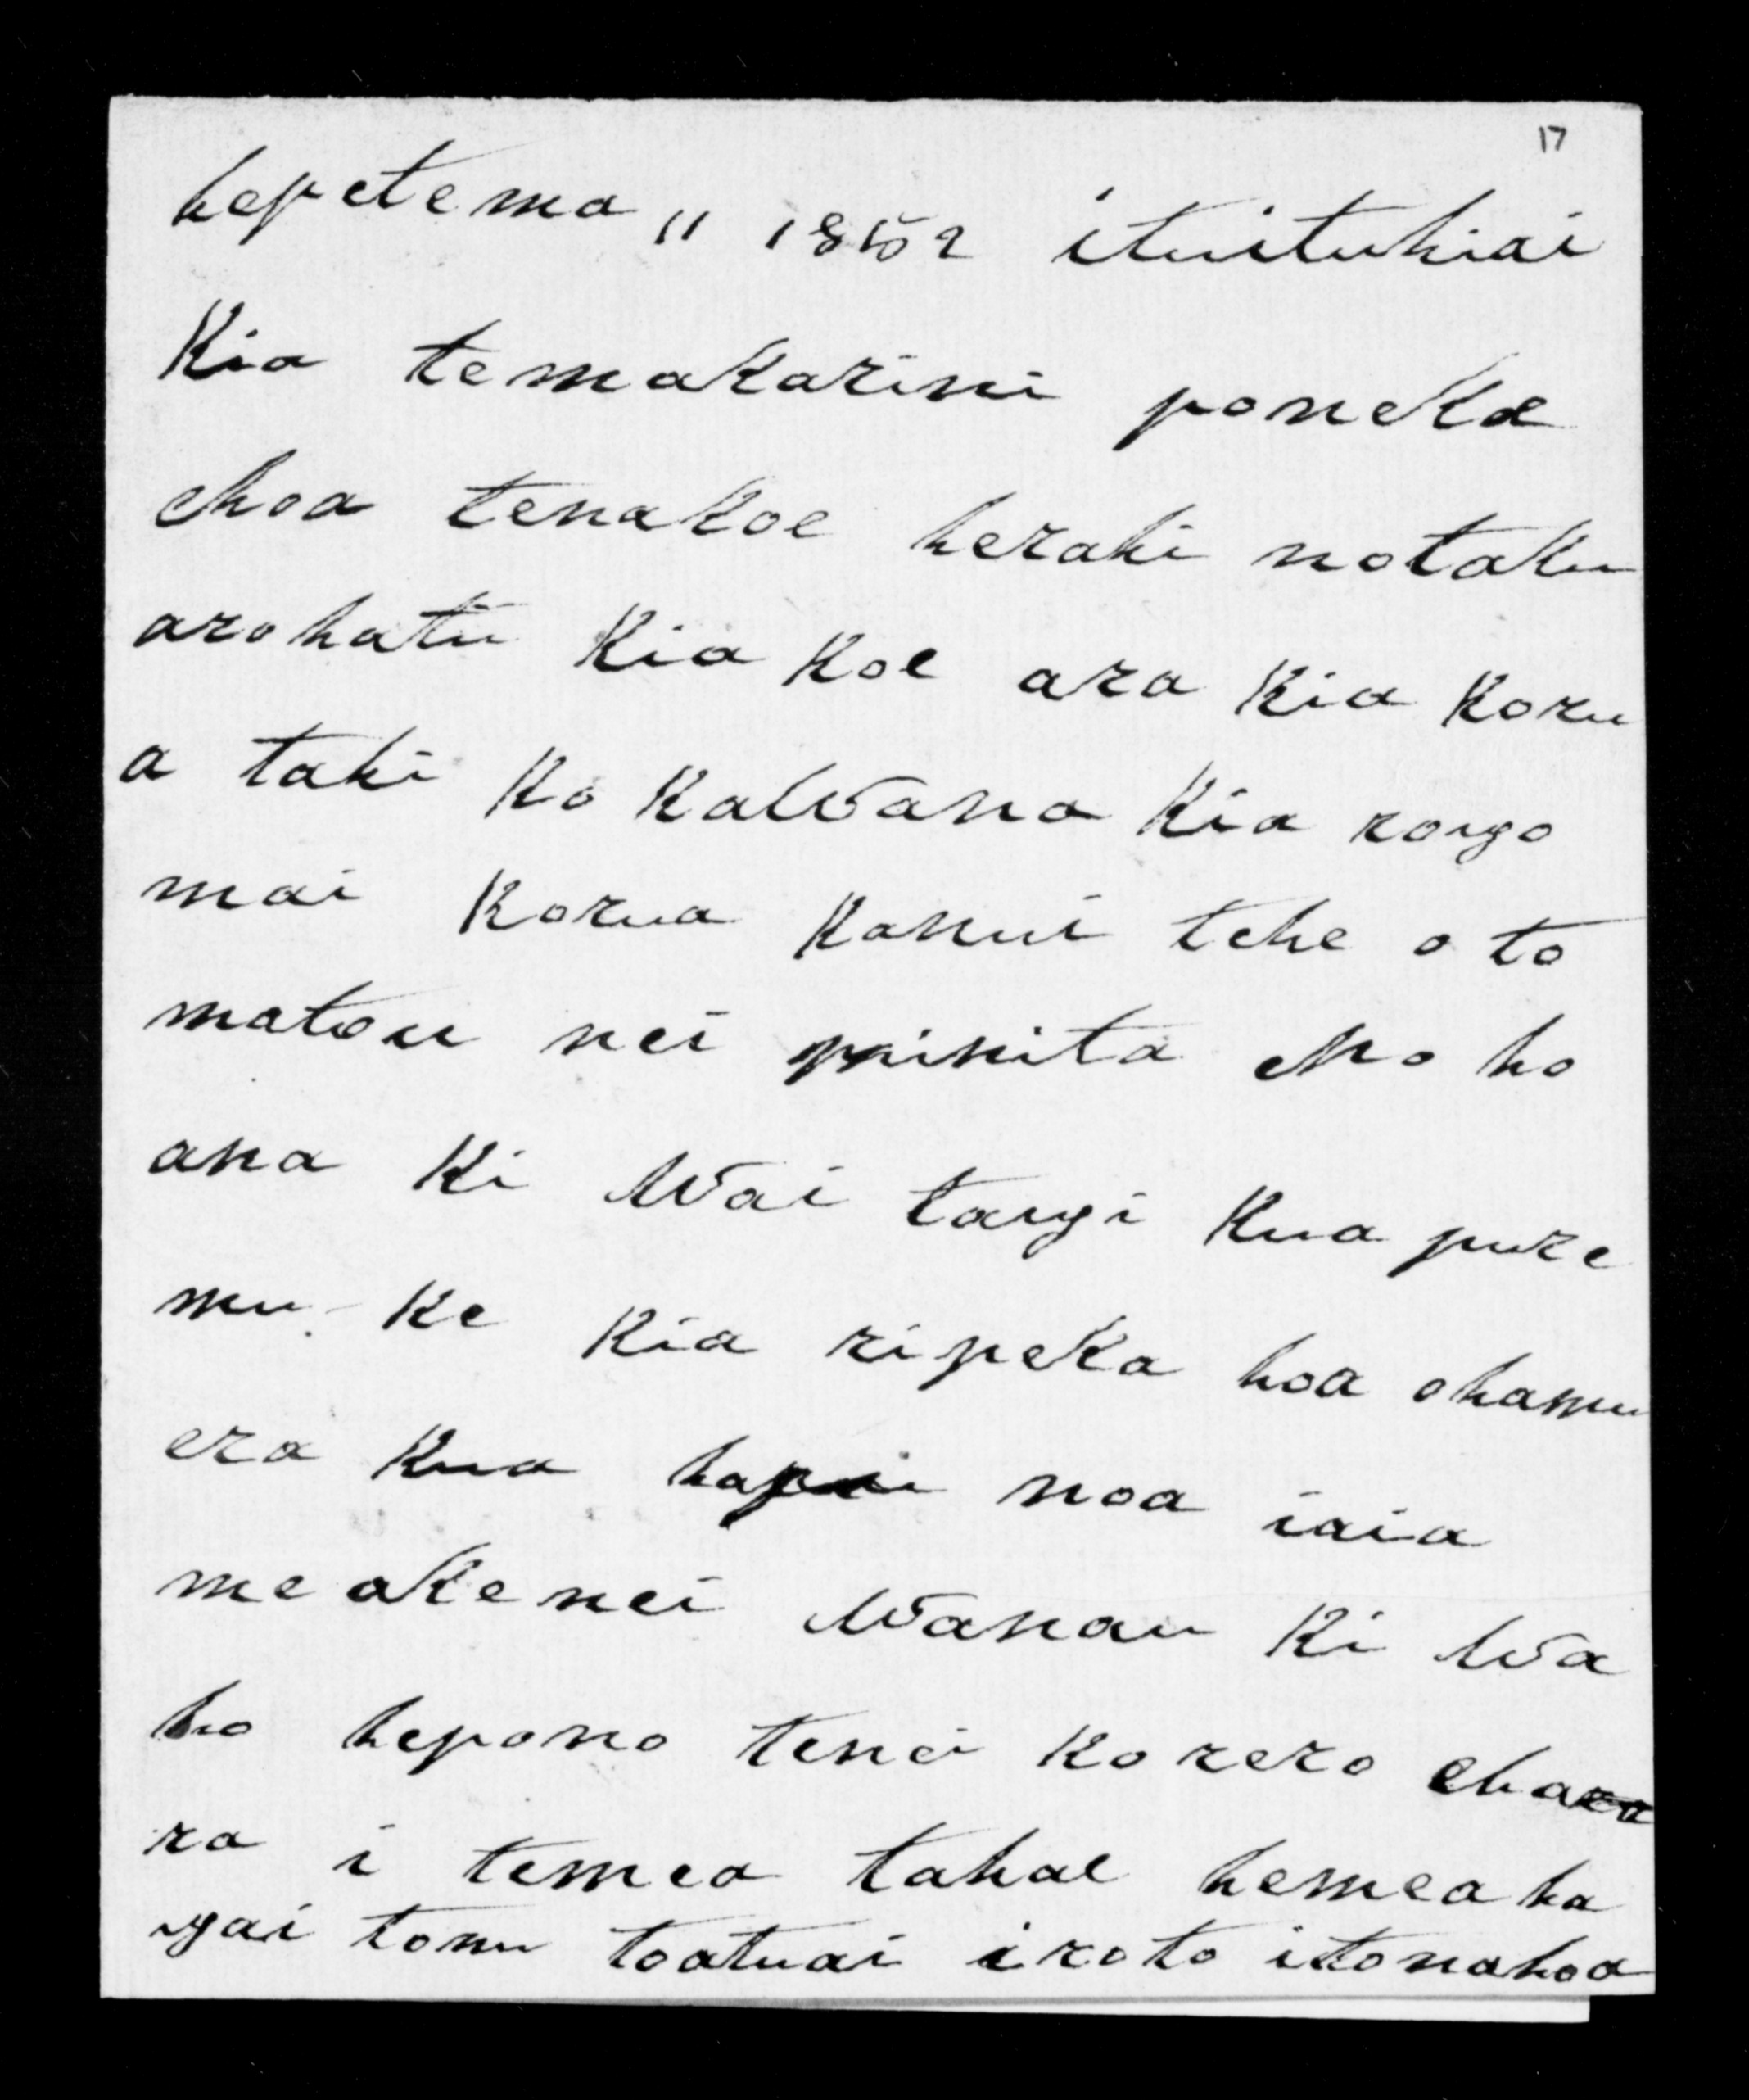 17
hepetema 11 1852 ituituhiai
Kia temakarini poneke
ehoa tenakoe heraki notaku
arohatu Kia Koe ara Kia Koru
a tahi Ko KaWana Kia rongo
mai Korua Kanui tehe o to
matou nei minita e No ho
ana Ki Wai tangi Kua pure
mu Ke Kia ripeka hoa ohamu
era Kua hapu noa iaia
meakenei Wanau Ki Wa
ho hepono tenei Korero eha
ra i temea tahae hemea ha
ngai tonu toatuai iroto itonahoa